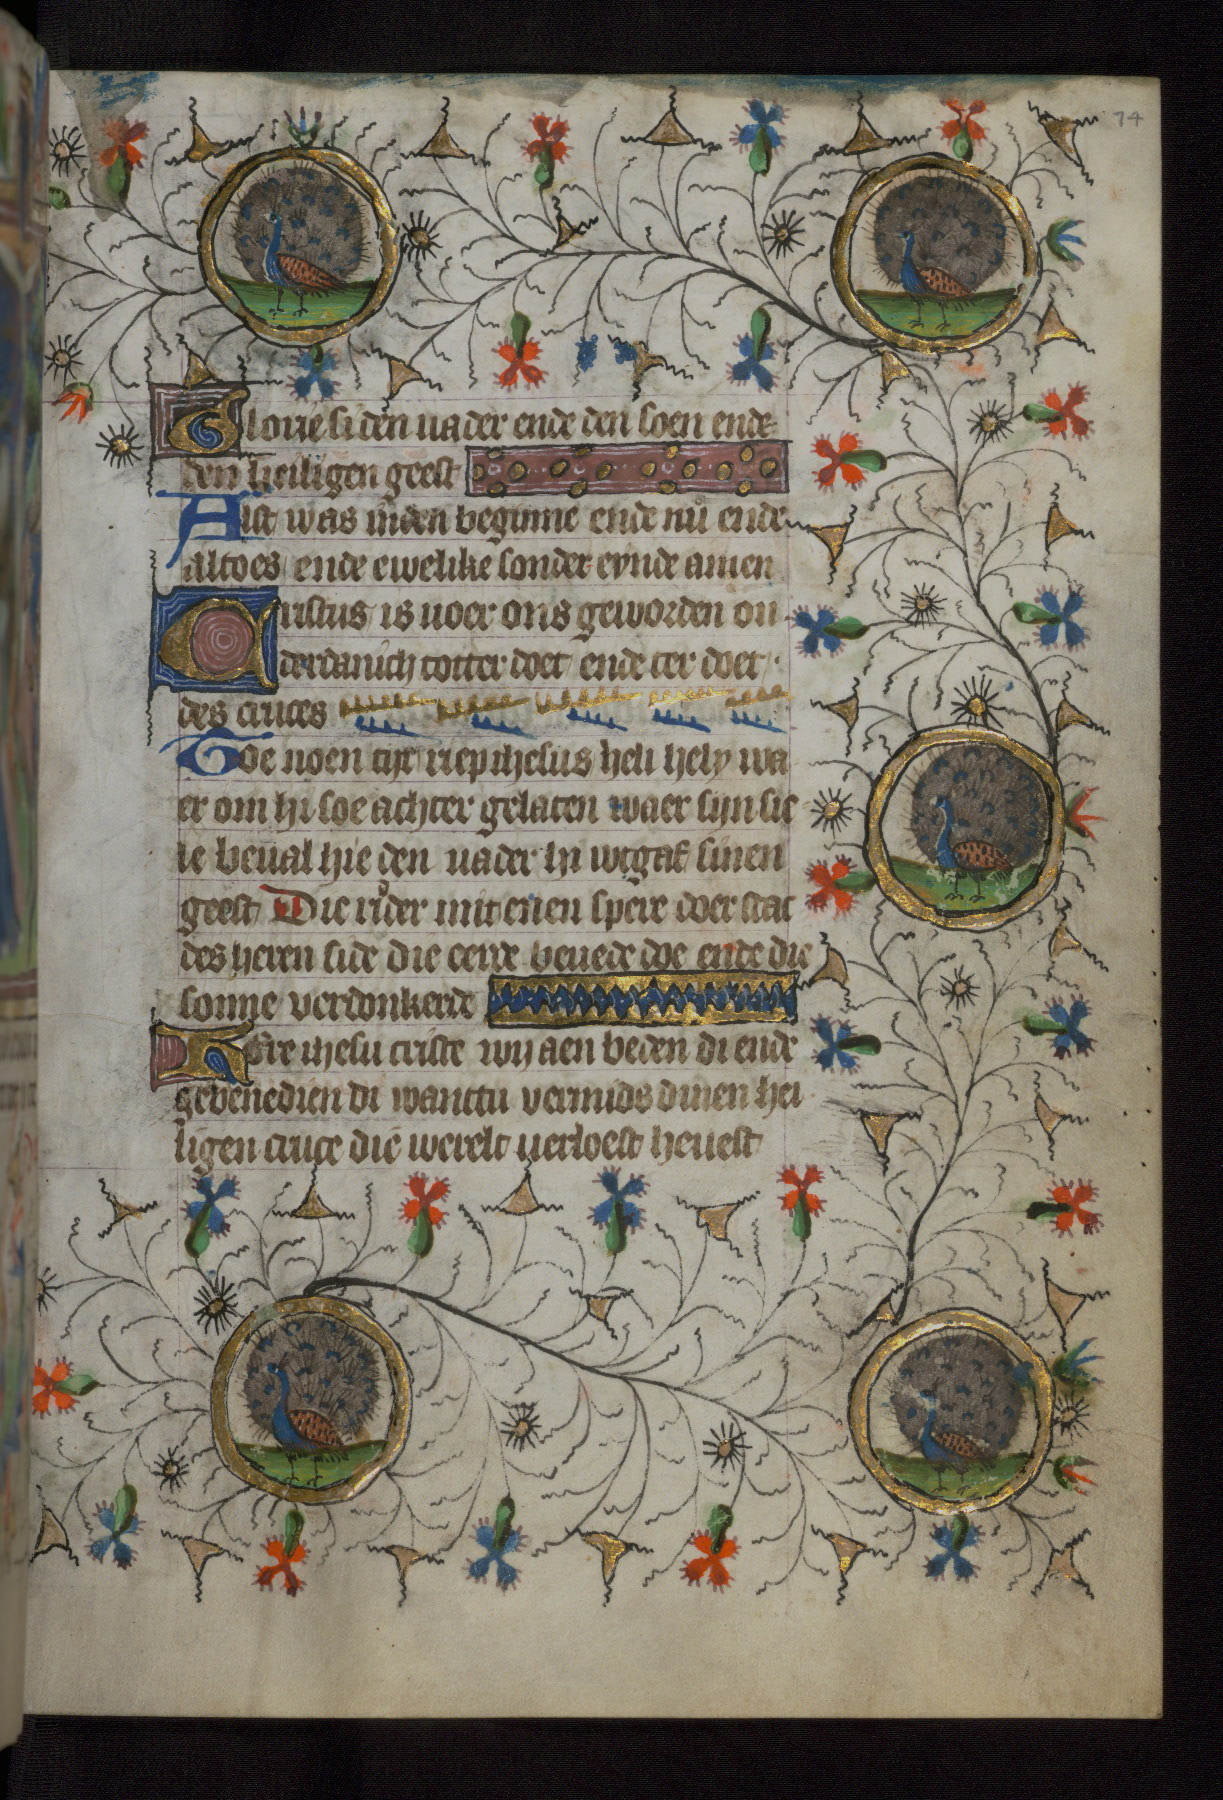 74
Glorie si den uader ende den soen ende
den heiligen geest
Alst was inden beginne ende nu ende
altoes ende ewelike sonder eynde amen
Cristus is uoer ons geworden on
derdanich totter doet ende ter doet
des cruces
Toe noen tijt riep ihesus heli hely wa
er om hi soe achter gelaten waer sijn sie
le beual hie den uader hi wtgaf sinen
geest Die rider mit enen spere doer stac
des heren side die eerde beuede doe ende die
sonne verdonkerde
Here ihesu criste wy aen beden di ende
gebenedien di wanttu vermids dinen hei
ligen cruce die werelt uerloest heuest